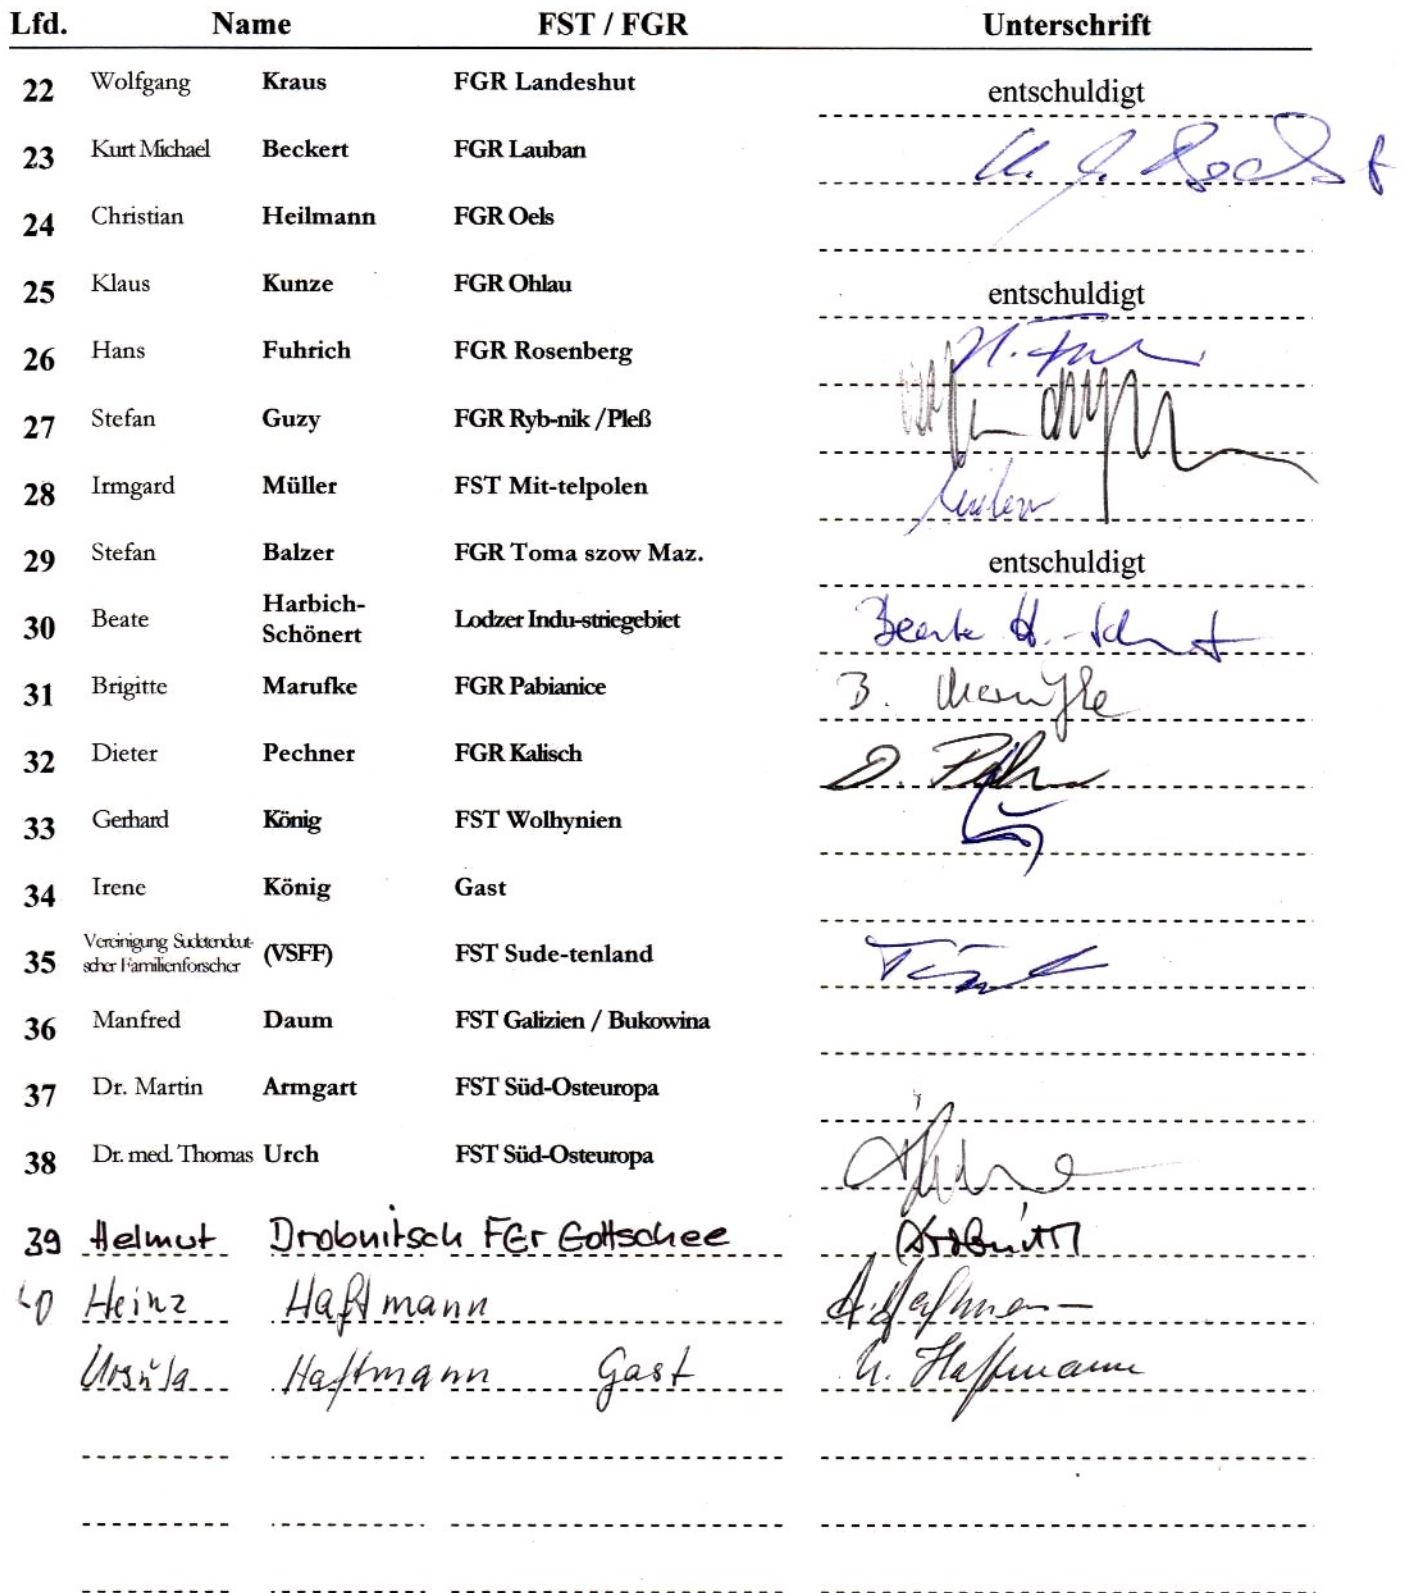 Lfd. Name FST / FGR Unterschrift
22 Wolfgang Kraus FGR Landeshut entschuldigt
23 Kurt Michael Beckert FGR Lauban
24 Christian Heilmann FGR Oels
25 Klaus Kunze FGR Ohlau entschuldigt
26 Hans Fuhrich FGR Rosenberg
27 Stefan Guzy FGR Ryb-nik /Pleß
28 Irmgard Müller FST Mit-telpolen
29 Stefan Balzer FGR Toma szow Maz. entschuldigt
30 Beate Harbich-
Schönert Lodzer Indu-striegebiet
31 Brigitte Marufke FGR Pabianice B. Marufke
32 Dieter Pechner FGR Kalisch
33 Gerhard König FST Wolhynien
34 Irene König Gast
35 Vereinigung Sudetendeut-
scher Familienforscher (VSFF) FST Sude-tenland
36 Manfred Daum FST Galizien / Bukowina
37 Dr. Martin Armgart FST Süd-Osteuropa
38 Dr. med. Thomas Urch FST Süd-Osteuropa
39 Helmut Drobnitsch FGr Gottschee
40 Heinz Haftmann
Ursula Haftmann Gast U. Haftmann